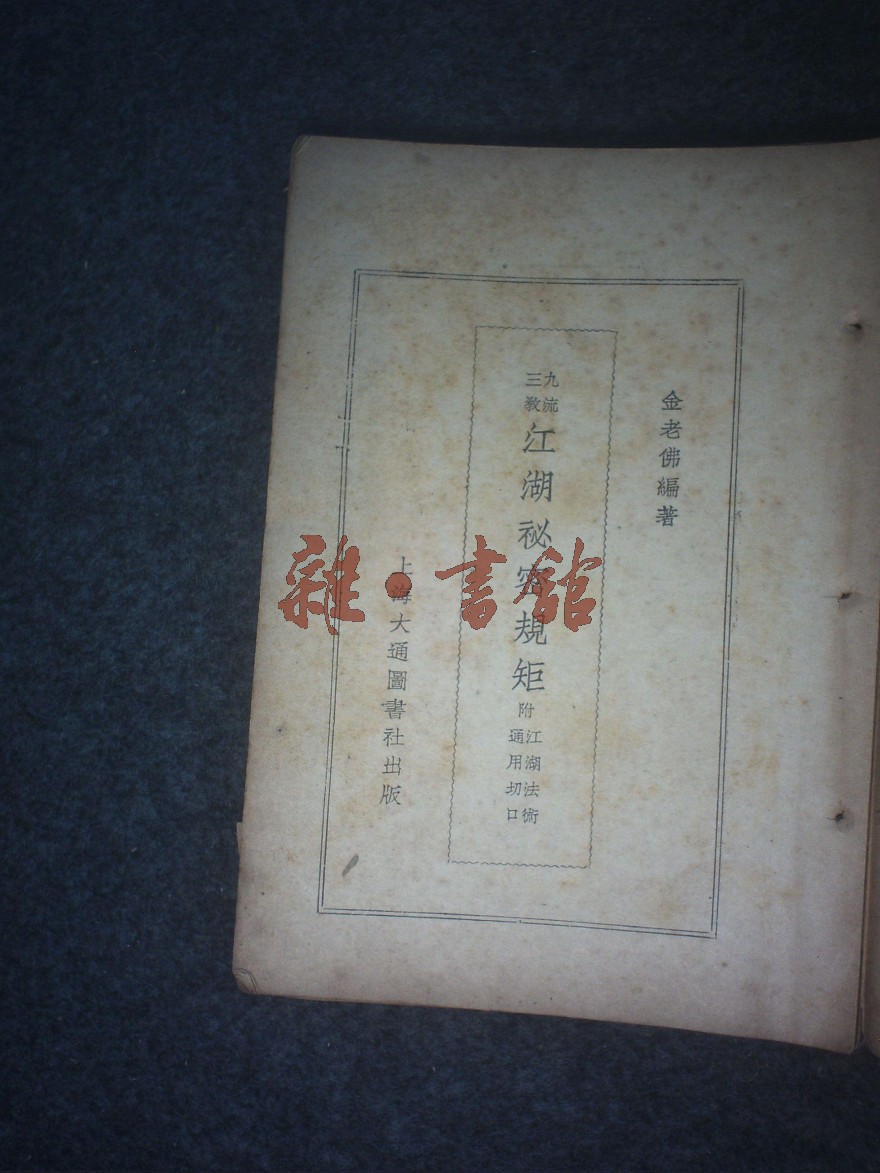 金老佛編著
九流
三教
江湖祕密規矩
附
江湖法術
通用切口
上海大通圖書社出版
雜·書館